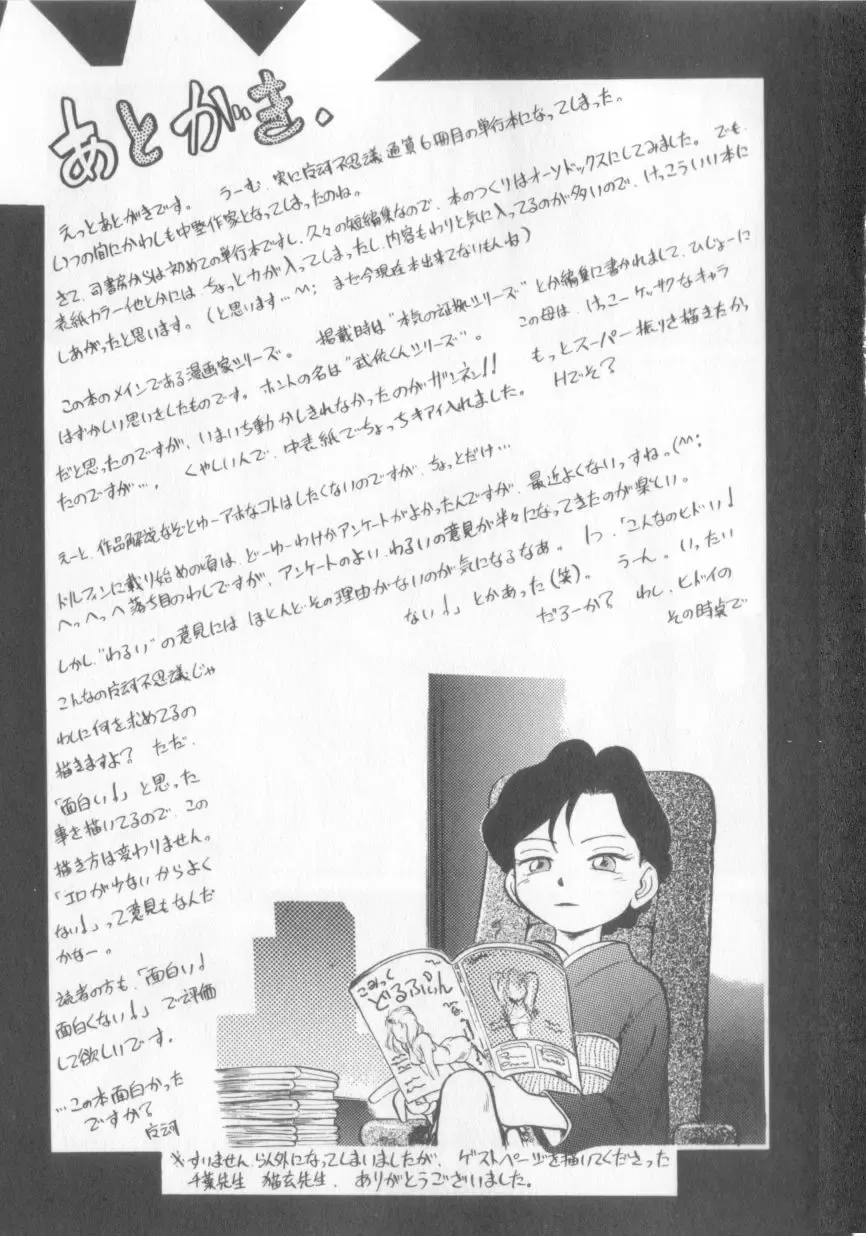 あとがき.
えっとあとがきです。 うーむ、実に反河不思議通算6冊目の単行本になってしまった。
いつの間にかわしも中堅作家となってしまったのね。
さて、司書房からは初めての単行本ですし、久々の短編集なので、本のつくりはオーソドックスにしてみました。でも、
表紙カラー他とかには、ちょっと力が入ってしまったし、内容もわりと気に入ってるのが多いので、けっこういい本に
しあがったと思います。(と思います…^^; まだ今現在本出来てないもんね)
この本のメインである漫画家シリーズ。 掲載時は"本気の証拠シリーズ"とか編集に書かれまして、ひじょーに
はずかしい思いをしたものです。ホントの名は"武依くんシリーズ"。 この母は、けっこーケッサクなキャラ
だと思ったのですが、いまいち動かしきれなかったのがザンネン!! もっとスーパー振りを描きたかっ
たのですが…。 くやしいんで、中表紙でちょっちキアイ入れました。 Hでそ?
えーと、作品解説なぞとゆーアホなコトはしたくないのですが、ちょっとだけ…
ドルフィンに載り始めの頃は、どーゆーわけかアンケートがよかったんですが、最近よくないっすね。(^^;
へっへっへ落ち目のわしですが、アンケートのよい、わるいの意見が半々になってきたのが楽しい。
しかし、"わるい"の意見にはほとんど、その理由がないのが気になるなあ。 1つ、「こんなのヒドい!
こんなの反河不思議じゃない!」とかあった(笑)。 うーん。いったい
わしに何を求めてるのだろーか? わし、ヒドイの
描きますよ? ただ、その時点で
「面白い!」と思った
事を描いてるので、この
描き方は変わりません。
「エロが少ないからよく
ない!」って意見もなんだ
かなー。
読者の方も、「面白い!
面白くない!」で評価
して欲しいです。
…この本面白かった
ですか?
反河
こみっく
どるふぃん
※すいません、らん外になってしまいましたが、ゲストページを描いてくださった
千葉先生 猫玄先生、ありがとうございました。